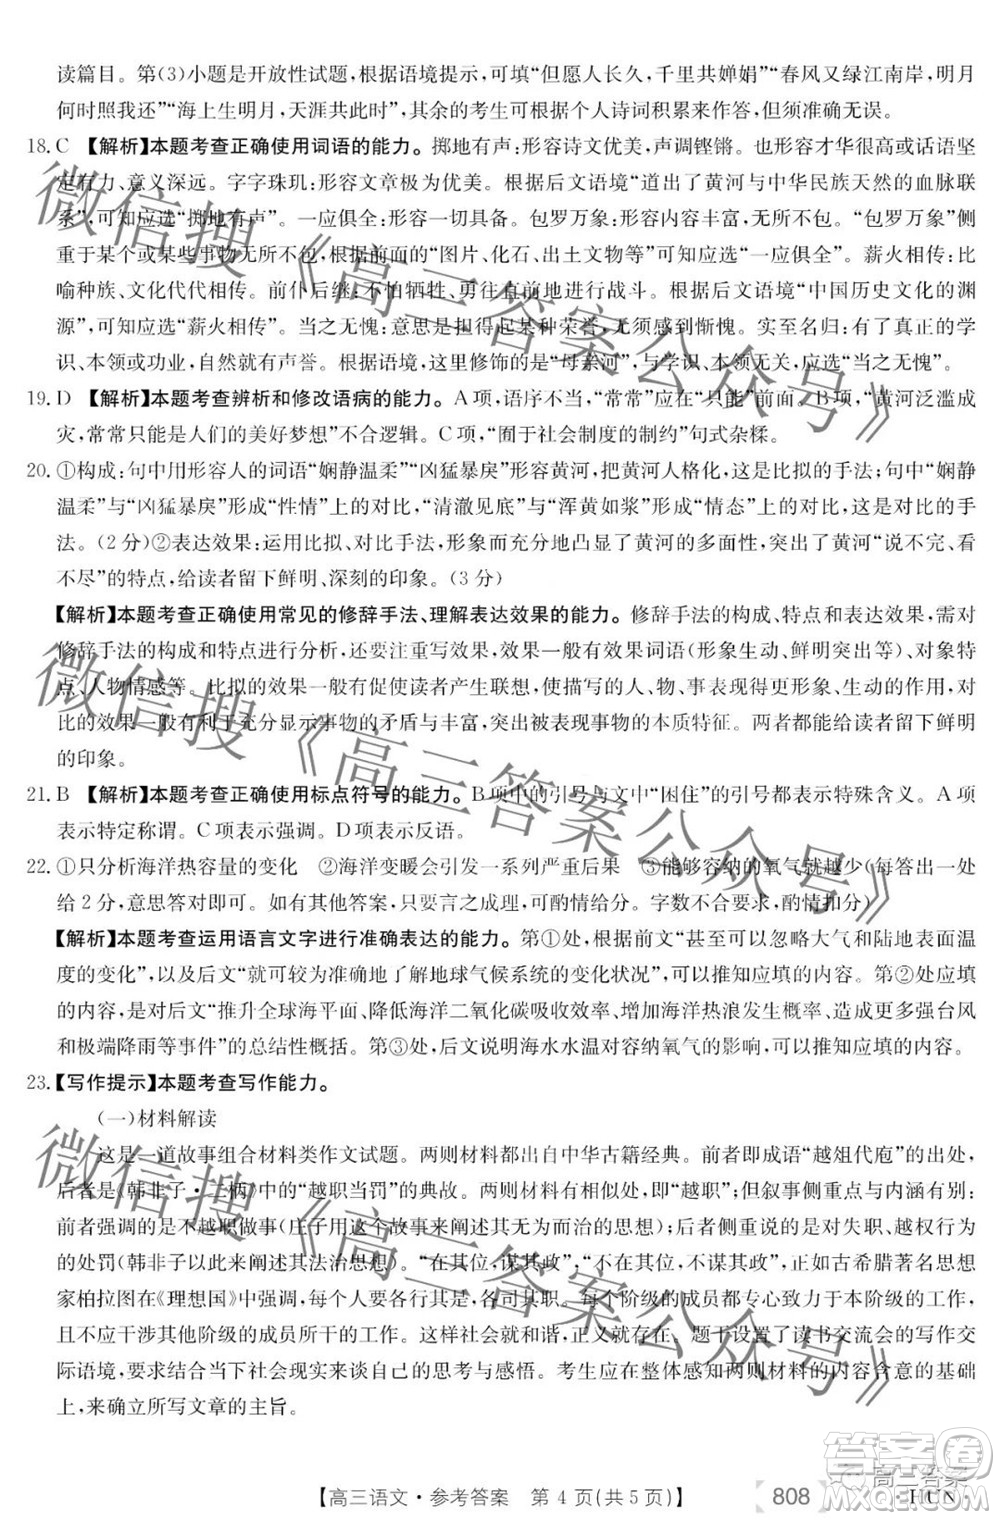 读篇目。第(3)小题是开放性试题,根据语境提示,可填“但愿人长久,千里共婵娟”“春风又绿江南岸,明月
何时照我还”“海上生明月,天涯共此时”,优秀的考生可根据个人诗词积累来作答,但须准确无误。
18. C 【解析】本题考查正确使用词语的能力。掷地有声:形容诗文优美,声调铿锵。也形容才华很高或话语坚
定有力、意义深远。字字珠玑:形容文章极为优美。根据后文语境“道出了黄河与中华民族天然的血脉联
系”,可知应选“掷地有声”。一应俱全:形容一切具备。包罗万象:形容内容丰富,无所不包。“包罗万象”侧
重于某类或某些事物无所不包,根据前面的“图片、化石、出土文物等”可知应选“一应俱全”。薪火相传:比
喻师生相传、文化代代相传。前仆后继:不怕牺牲,英勇向前地进行战斗。根据后文语境“中国历史文化的渊
源”,可知应选“薪火相传”。当之无愧:意思是担得起某种荣誉,不必感到惭愧。名不虚传:有了真正的学
识、本领或功业,自然就有声誉。根据语境,这里修饰的是“母亲河”,与学识、本领无关,故应选“当之无愧”。
19. D 【解析】本题考查辨析和修改语病的能力。A项,语序不当,“常常”应在“只是”前面。B项,“黄河泛滥成
灾,常常只能是人们的美好梦想”不合逻辑。C项,“囿于社会制度的制约”句式杂糅。
20. ①构成:句中用形容人的词语“娴静温柔”“凶猛暴戾”形容黄河,将黄河人格化,这是比拟的手法;句中“娴静
温柔”与“凶猛暴戾”形成“性情”上的对比,“清澈见底”与“浑黄如浆”形成“情态”上的对比,这是对比的手
法。(2分)②表达效果:运用比拟、对比手法,形象而充分地凸显了黄河的多面性,突出了黄河“说不完、看
不尽”的特点,给读者留下鲜明、深刻的印象。(3分)
【解析】本题考查正确使用常见的修辞手法、理解表达效果的能力。修辞手法的构成、特点和表达效果,需对
修辞手法的构成和特点进行分析,还要注重写效果,效果一般有效果词语(形象、生动、鲜明突出等)、对象特
点、人物情感等。比拟的效果一般有利于促使读者产生联想,使描写的人、物、事表现得更形象、生动的作用,对
比的效果一般有利于充分显示事物的矛盾与丰富,突出被表现事物的本质特征。两者都能给读者留下鲜明
的印象。
21. B 【解析】本题考查正确使用标点符号的能力。B项中的引号与文中“困住”的引号都表示特殊含义。A项
表示特定称谓。C项表示强调。D项表示反语。
22. ①只分析海洋热容量的变化 ②海洋变暖会引发一系列严重后果 ③能够容纳的氧气就越少(每答出一处
给2分,意思答对即可。如有其他答案,只要言之成理,可酌情给分。字数不合要求,酌情扣分)
【解析】本题考查运用语言文字进行准确表达的能力。第①处,根据前文“甚至可以忽略大气和陆地表面温
度的变化”,以及后文“就可以较为准确地了解地球气候系统的变化状况”,可推知应填的内容。第②处应填
的内容,是对后文“推升全球海平面、降低海洋二氧化碳吸收效率、增加海洋热浪发生概率,以及增强台风
和极端降雨等事件”的总结性概括。第③处,后文说明海水水温对氧气的影响,可推知应填的内容。
23.【写作提示】本题考查写作能力。
(一)材料解读
这是一道故事组合材料类作文试题。两则材料都出自中华古籍经典。前者即成语“越俎代庖”的来源,
后者是《韩非子·二柄》中的“越职当罚”的典故。两则材料有相同之处,即“越职”;但叙事侧重点与内涵有别:
前者强调的是不越职做事(庄子用这个故事来阐述其无为而治的思想);后者侧重说的是对失职、越权行为
的处罚(韩非子阐述其法治思想)。“在其位,谋其政”,“不在其位,不谋其政”,正如古希腊著名思想
家柏拉图在《理想国》中强调,每个人要各居其位,各司其职,每个阶级的成员都专心致力于本阶级的工作,
且不应干涉其他阶级的成员所干的工作。这样,社会就和谐,正义就实现。题干设置了读书交流会的写作交
际语境,寓意着由古籍到当下社会现实来谈自己的思考与感悟。考生应在全面感知两则材料的内容含意的基础
上,来确立所写文章的主旨。
微信搜《高三答案公众号》
微信搜《高三答案公众号》
微信搜《高三答案公众号》
【高三语文·参考答案 第4页(共5页)】 808 ·HUN·
答案圈
高三答案
MXQE.COM